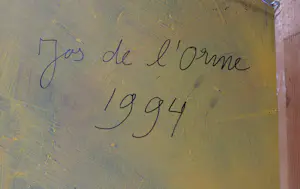 Jos de l'Orme
1994